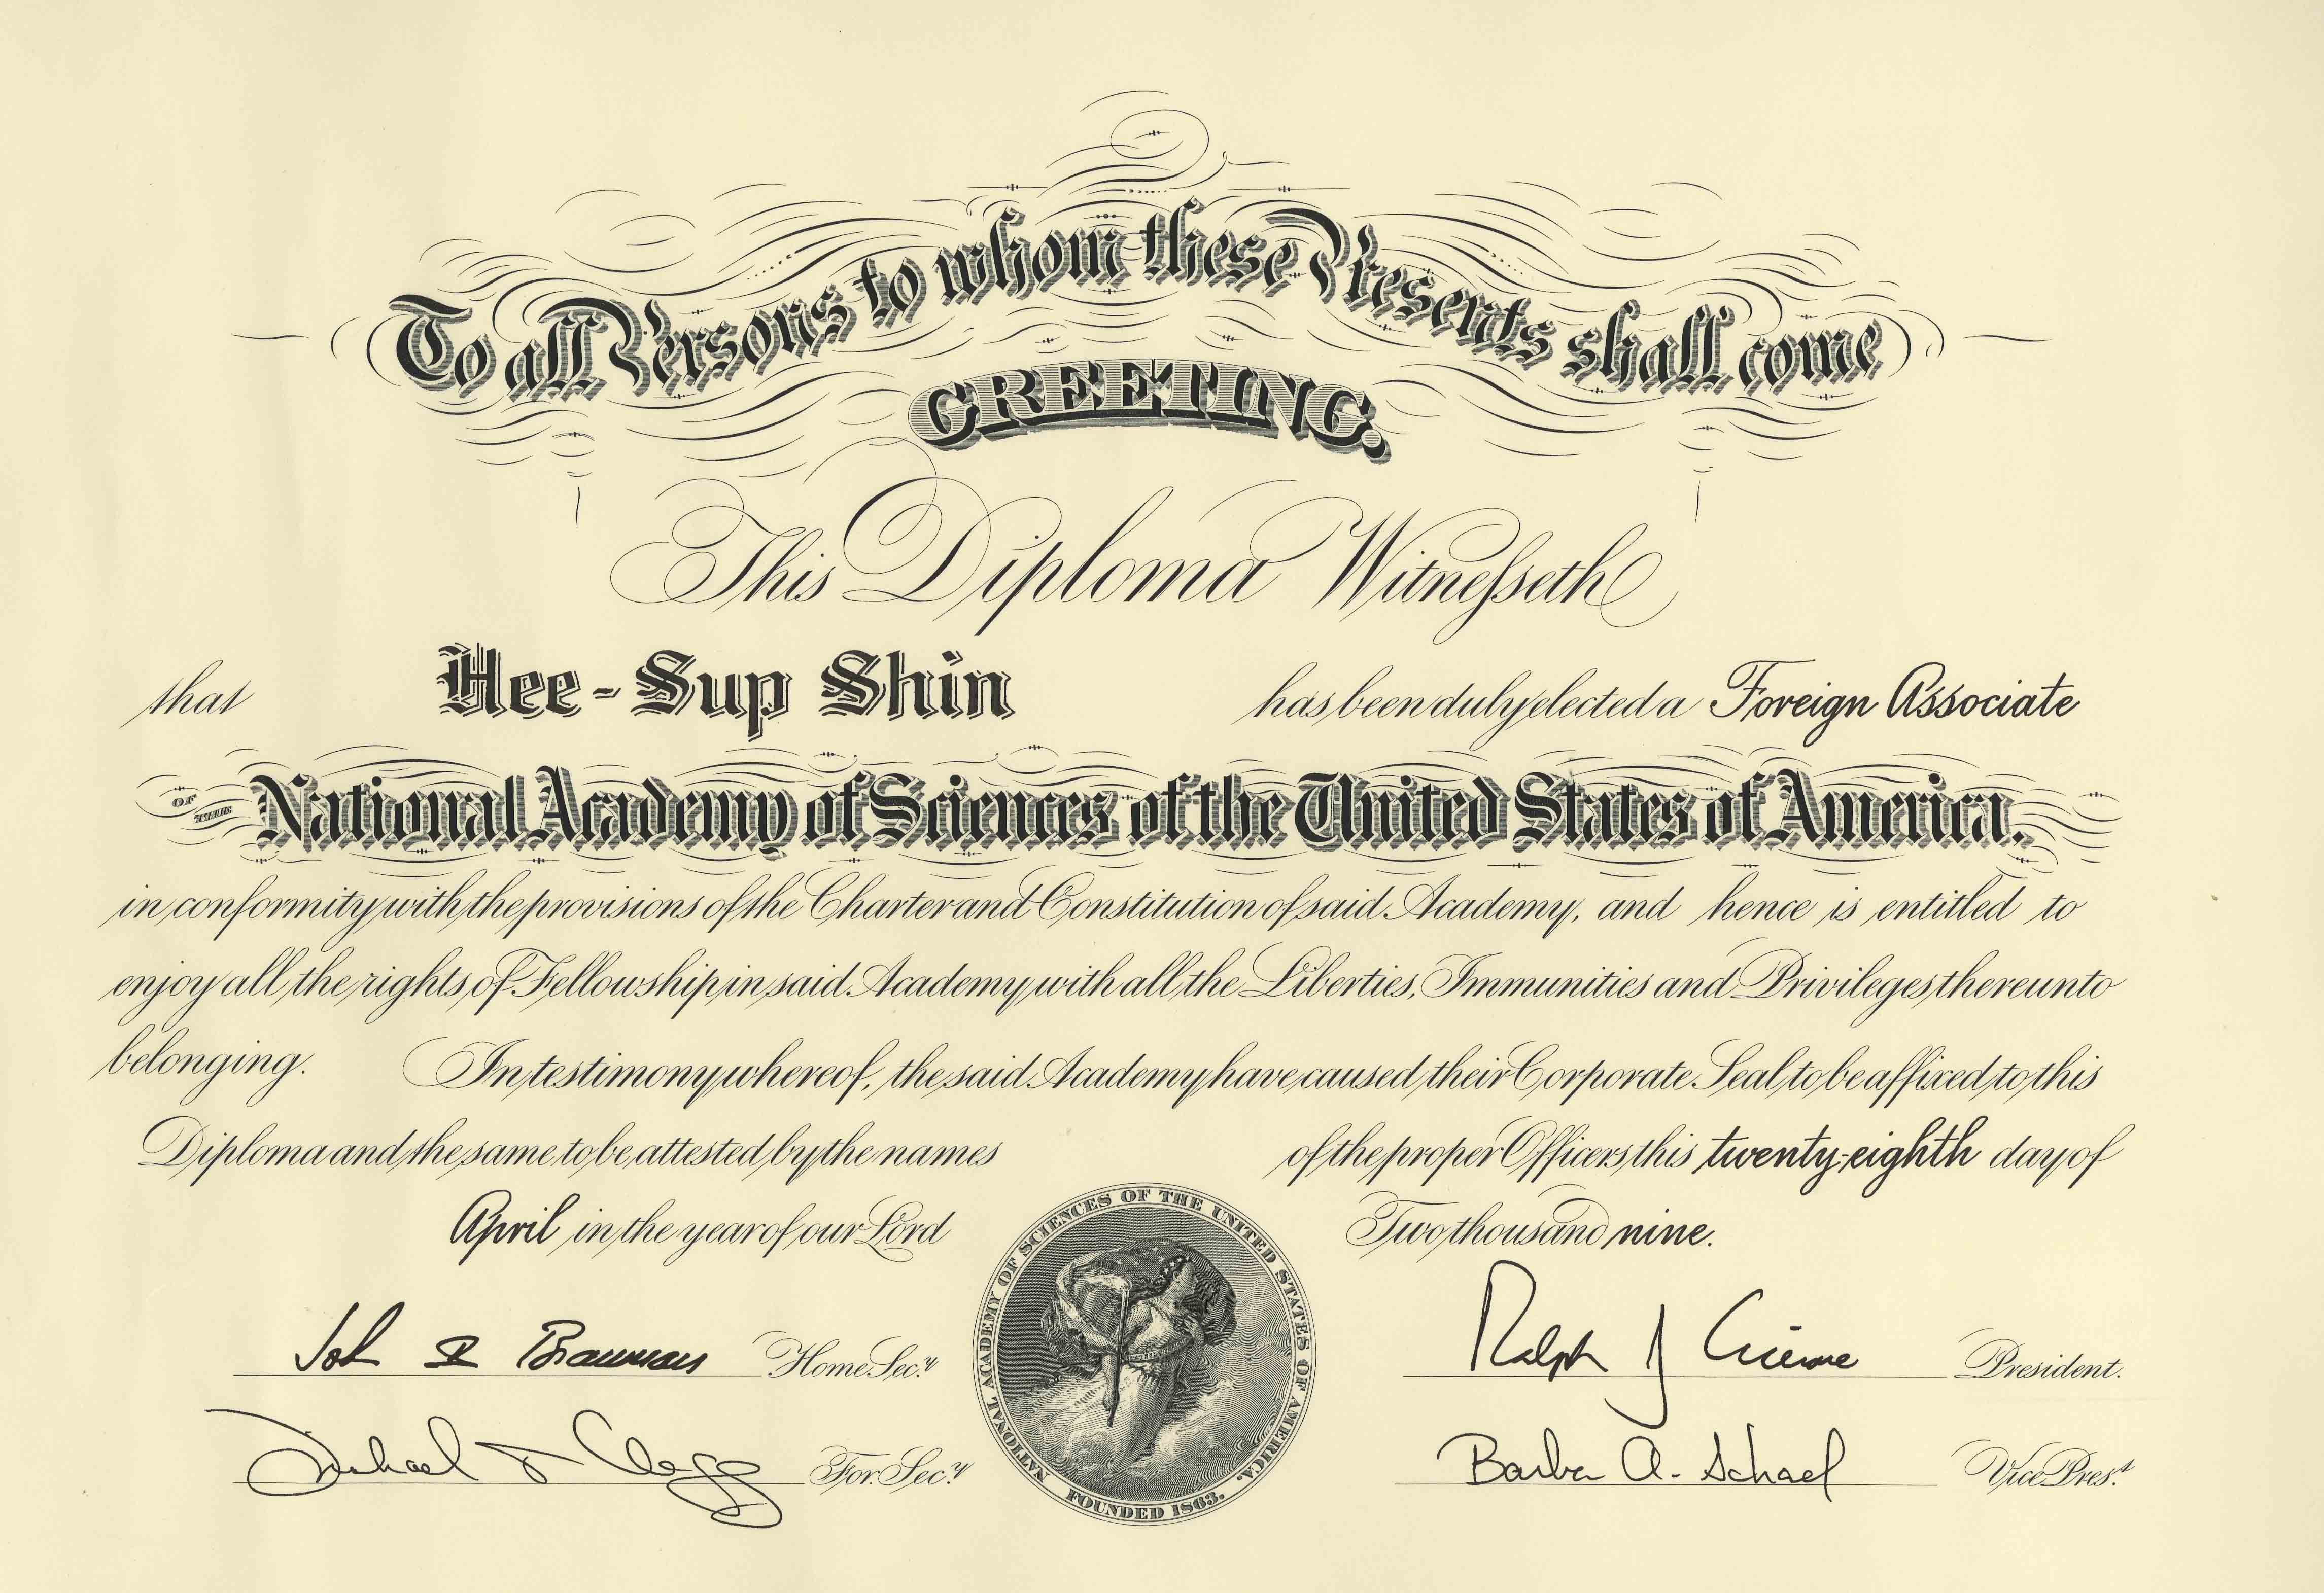 To all Persons to whom these Presents shall come
GREETING.
This Diploma Witnesseth
that Hee-Sup Shin has been duly elected a Foreign Associate
OF THE National Academy of Sciences of the United States of America.
in conformity with the provisions of the Charter and Constitution of said Academy, and hence is entitled to
enjoy all the rights of Fellowship in said Academy with all the Liberties, Immunities and Privileges thereunto
belonging. In testimony whereof, the said Academy have caused their Corporate Seal to be affixed to this
Diploma and the same to be attested by the names of the proper Officers, this twenty-eighth day of
April in the year of our Lord Two thousand nine.
NATIONAL ACADEMY OF SCIENCES OF THE UNITED STATES OF AMERICA.
FOUNDED 1863.
John I Brauman Home Sec.y Ralph J Cicerone President.
Michael T Clegg For. Sec.y Barbara A. Schaal Vice Pres.t